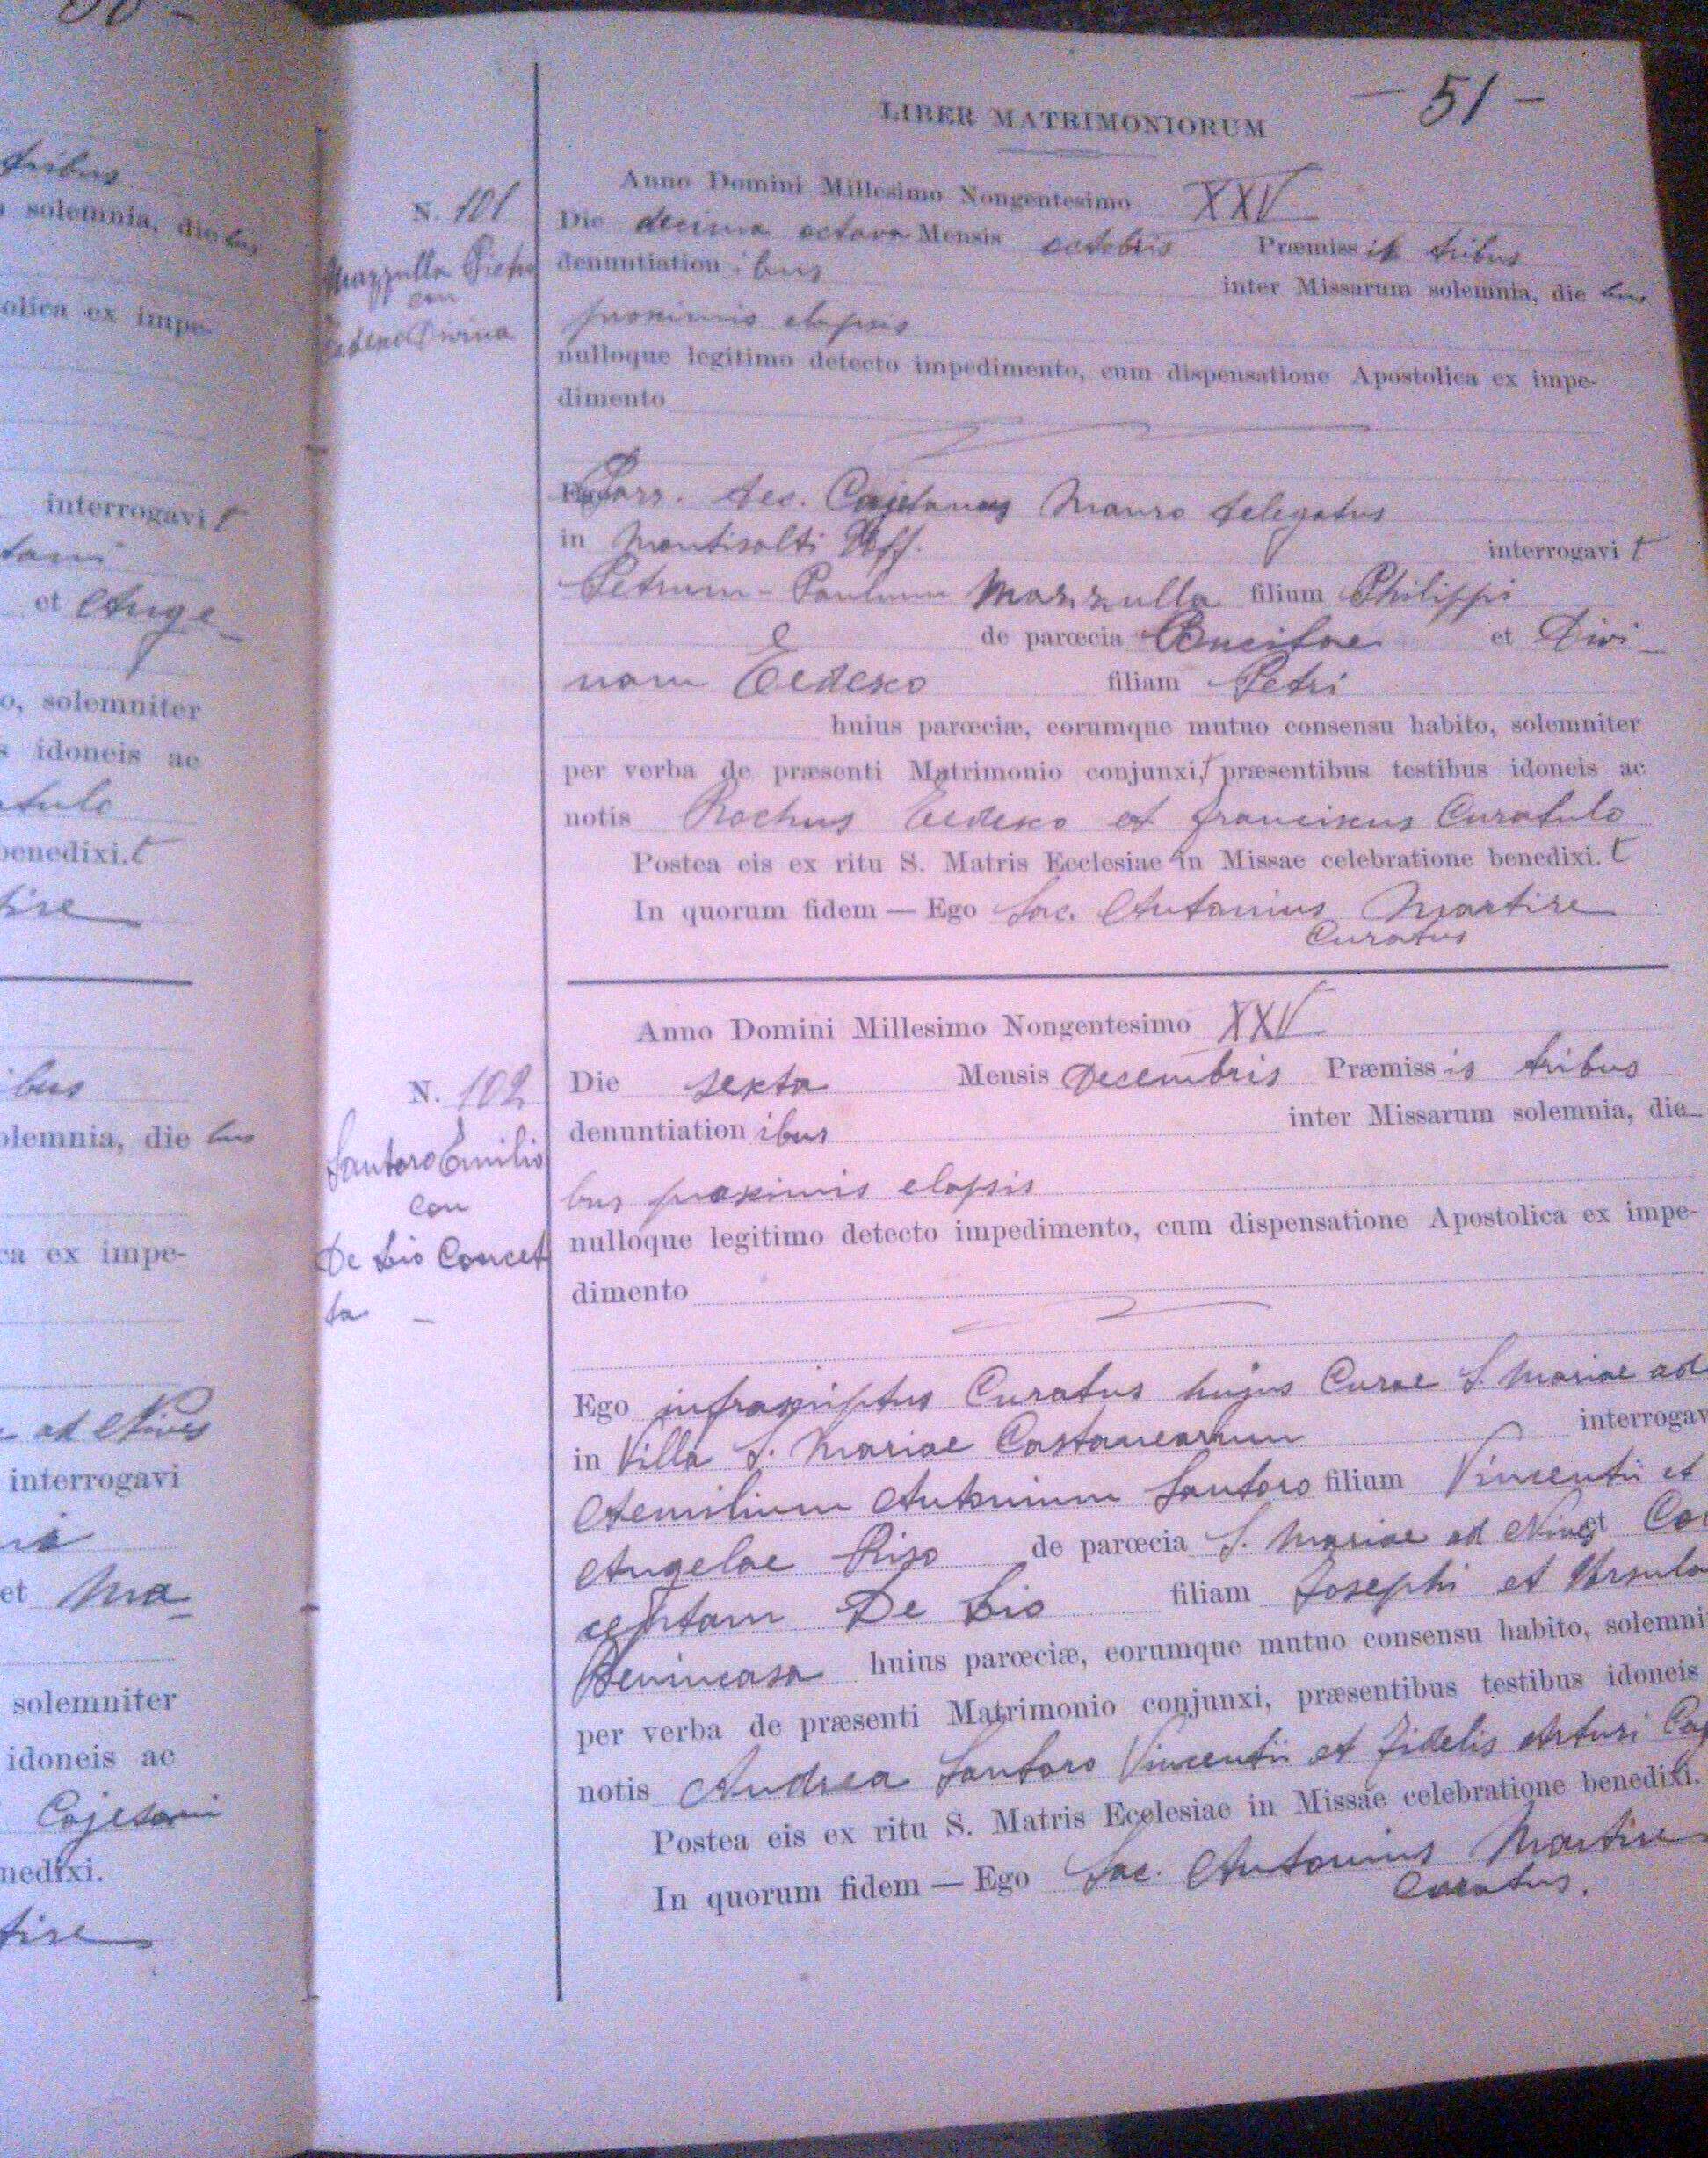 - 51 -
LIBER MATRIMONIORUM
N. 101
Mazzulla Pietro
con
Tedesco Divina
Anno Domini Millesimo Nongentesimo XXV
Die decima octava Mensis octobris Præmissis tribus
denuntiationibus inter Missarum solemnia, diebus
proximis elapsis
nulloque legitimo detecto impedimento, cum dispensatione Apostolica ex impe-
dimento
Cajetanus Mauro delegatus
in Montisalti Uff. interrogavit
Petrum-Paulum Mazzulla filium Philippi
de parœcia et Divi-
nam Tedesco filiam Petri
huius parœciæ, eorumque mutuo consensu habito, solemniter
per verba de præsenti Matrimonio conjunxit, præsentibus testibus idoneis ac
notis Rochus Tedesco et Franciscus Curatulo
Postea eis ex ritu S. Matris Ecclesiae in Missae celebratione benedixi.t
In quorum fidem — Ego Sac. Antonius Martire
Curatus
N. 102
Santoro Emilio
con
De Lio Concet
ta -
Anno Domini Millesimo Nongentesimo XXV
Die sexta Mensis Decembris Præmissis tribus
denuntiationibus inter Missarum solemnia, die
bus proximis elapsis
nulloque legitimo detecto impedimento, cum dispensatione Apostolica ex impe-
dimento
Ego infrascriptus Curatus hujus Curae S. Mariae ad
in Villa S. Mariae Castanearum interrogav
Aemilium Antonium Santoro filium Vincentii et
Angelae Riso de parœcia S. Mariae ad Nives et Con
ceptam De Lio filiam Josephi et Ursula
Benincasa huius parœciæ, eorumque mutuo consensu habito, solemni
per verba de præsenti Matrimonio conjunxi, præsentibus testibus idoneis
notis Andrea Santoro Vincentii et Fidelis Arturi
Postea eis ex ritu S. Matris Ecclesiae in Missae celebratione benedixi.
In quorum fidem — Ego Sac. Antonius Martire
Curatus.
tribus
solemnia, diebus
olica ex impe-
interrogavit
et Ange-
o, solemniter
idoneis ac
benedixi.t
tire
bus
olemnia, die bus
ca ex impe-
ad Nives
interrogavi
et Ma-
solemniter
idoneis ac
Cajetani
nedixi.
tire